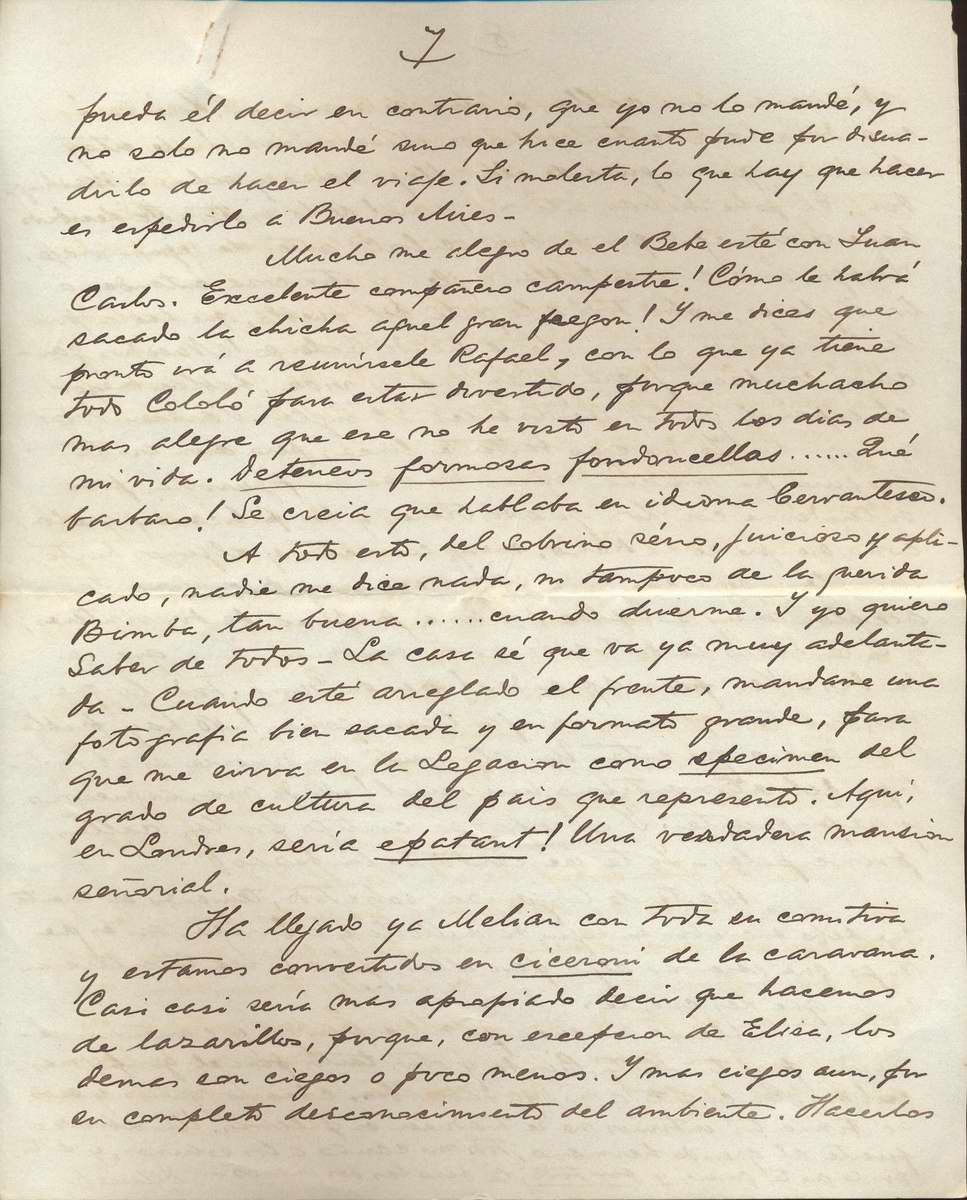 7
pueda él decir en contrario, que yo no lo mandé, y
no solo no mandé sino que hice cuanto pude por disua-
dirlo de hacer el viaje. Si molesta, lo que hay que hacer
es espedirlo á Buenos Aires-
Mucho me alegro de el Bebe esté con Juan
Carlos. Excelente compañero campestre! Cómo le habrá
sacado la chicha aquel gran! Y me dices que
pronto irá a reunírsele Rafael, con lo que ya tiene
todo Cololó para estar divertido, porque muchacho
mas alegre que ese no he visto en todos los dias de
mi vida. Deteneos formosas fondoncellas...... Qué
barbaro! Se creia que hablaba en idioma Cervantesco.
A todo esto, del sobrino sério, juicioso y apli-
cado, nadie me dice nada, ni tampoco de la querida
Bimba, tan buena ......cuando duerme. Y yo quiero
saber de todos- La casa sé que va ya muy adelanta-
da - Cuando esté arreglado el frente, mandame una
fotografia bien sacada y en formato grande, para
que me sirva en la Legacion como specimen del
grado de cultura del pais que represento. Aquí,
en Londres, sería epatant! Una verdadera mansion
señorial.
Ha llegado ya Melian con toda su comitiva
y estamos convertidos en ciceroni de la caravana.
Casi casi sería mas apropiado decir que hacemos
de lazarillos, porque, con escepcion de Elisa, los
demas son ciegos o poco menos. Y mas ciegos aun, por
su completo desconocimiento del ambiente. Hacerlos